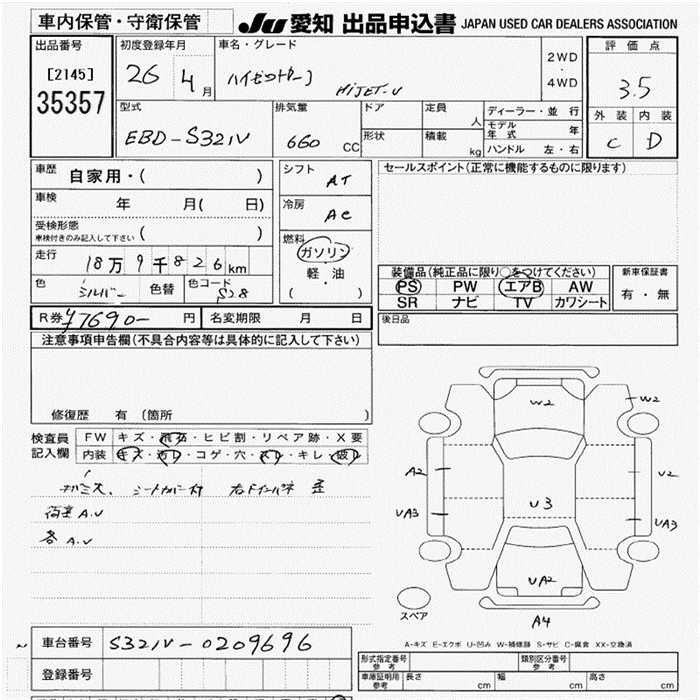 車内保管・守衛保管 JU 愛知 出品申込書 JAPAN USED CAR DEALERS ASSOCIATION
出品番号 初度登録年月 車名・グレード 評価点
[2145] 35357
26 4月 HiJET-V 2WD・4WD 3.5
型式 排気量 ドア 定員 人 ディーラー・並行 外装 内装
EBD-S321V 660 CC 形状 積載 kg モデル年式 年 ハンドル 左・右 C D
車歴 自家用・( )
シフト AT
セールスポイント(正常に機能するものに限ります)
車検 年 月( 日)
冷房 AC
受検形態
車検付きのみ記入して下さい
燃料 ガソリン 軽・油 ( )
走行 18万9千826km
装備品(純正品に限り○をつけてください) 新車保証書
PS PW エアB AW 有・無
SR ナビ TV カワシート
色 シルバー 色替 色コード S28
R券 ¥7690- 円 名変期限 月 日
後日品
注意事項申告欄(不具合内容等は具体的に記入して下さい)
修復歴 有(箇所 )
検査員記入欄 FW キズ・飛石・ヒビ割・リペア跡・X要
内装 キズ・汚レ・コゲ・穴・スレ・キレ・破レ
シートカバー付
A.U
各 A.U
W2
W2
A2
U2
U3
UA3
UA3
UA2
スペア
A4
A-キズ E-エクボ U-凹み W-補修跡 S-サビ C-腐食 XX-交換済
車台番号 S321V-0209696
登録番号
形式指定番号 参考 類別区分番号 参考
車庫証明用 参考 長さ cm 幅 cm 高さ cm